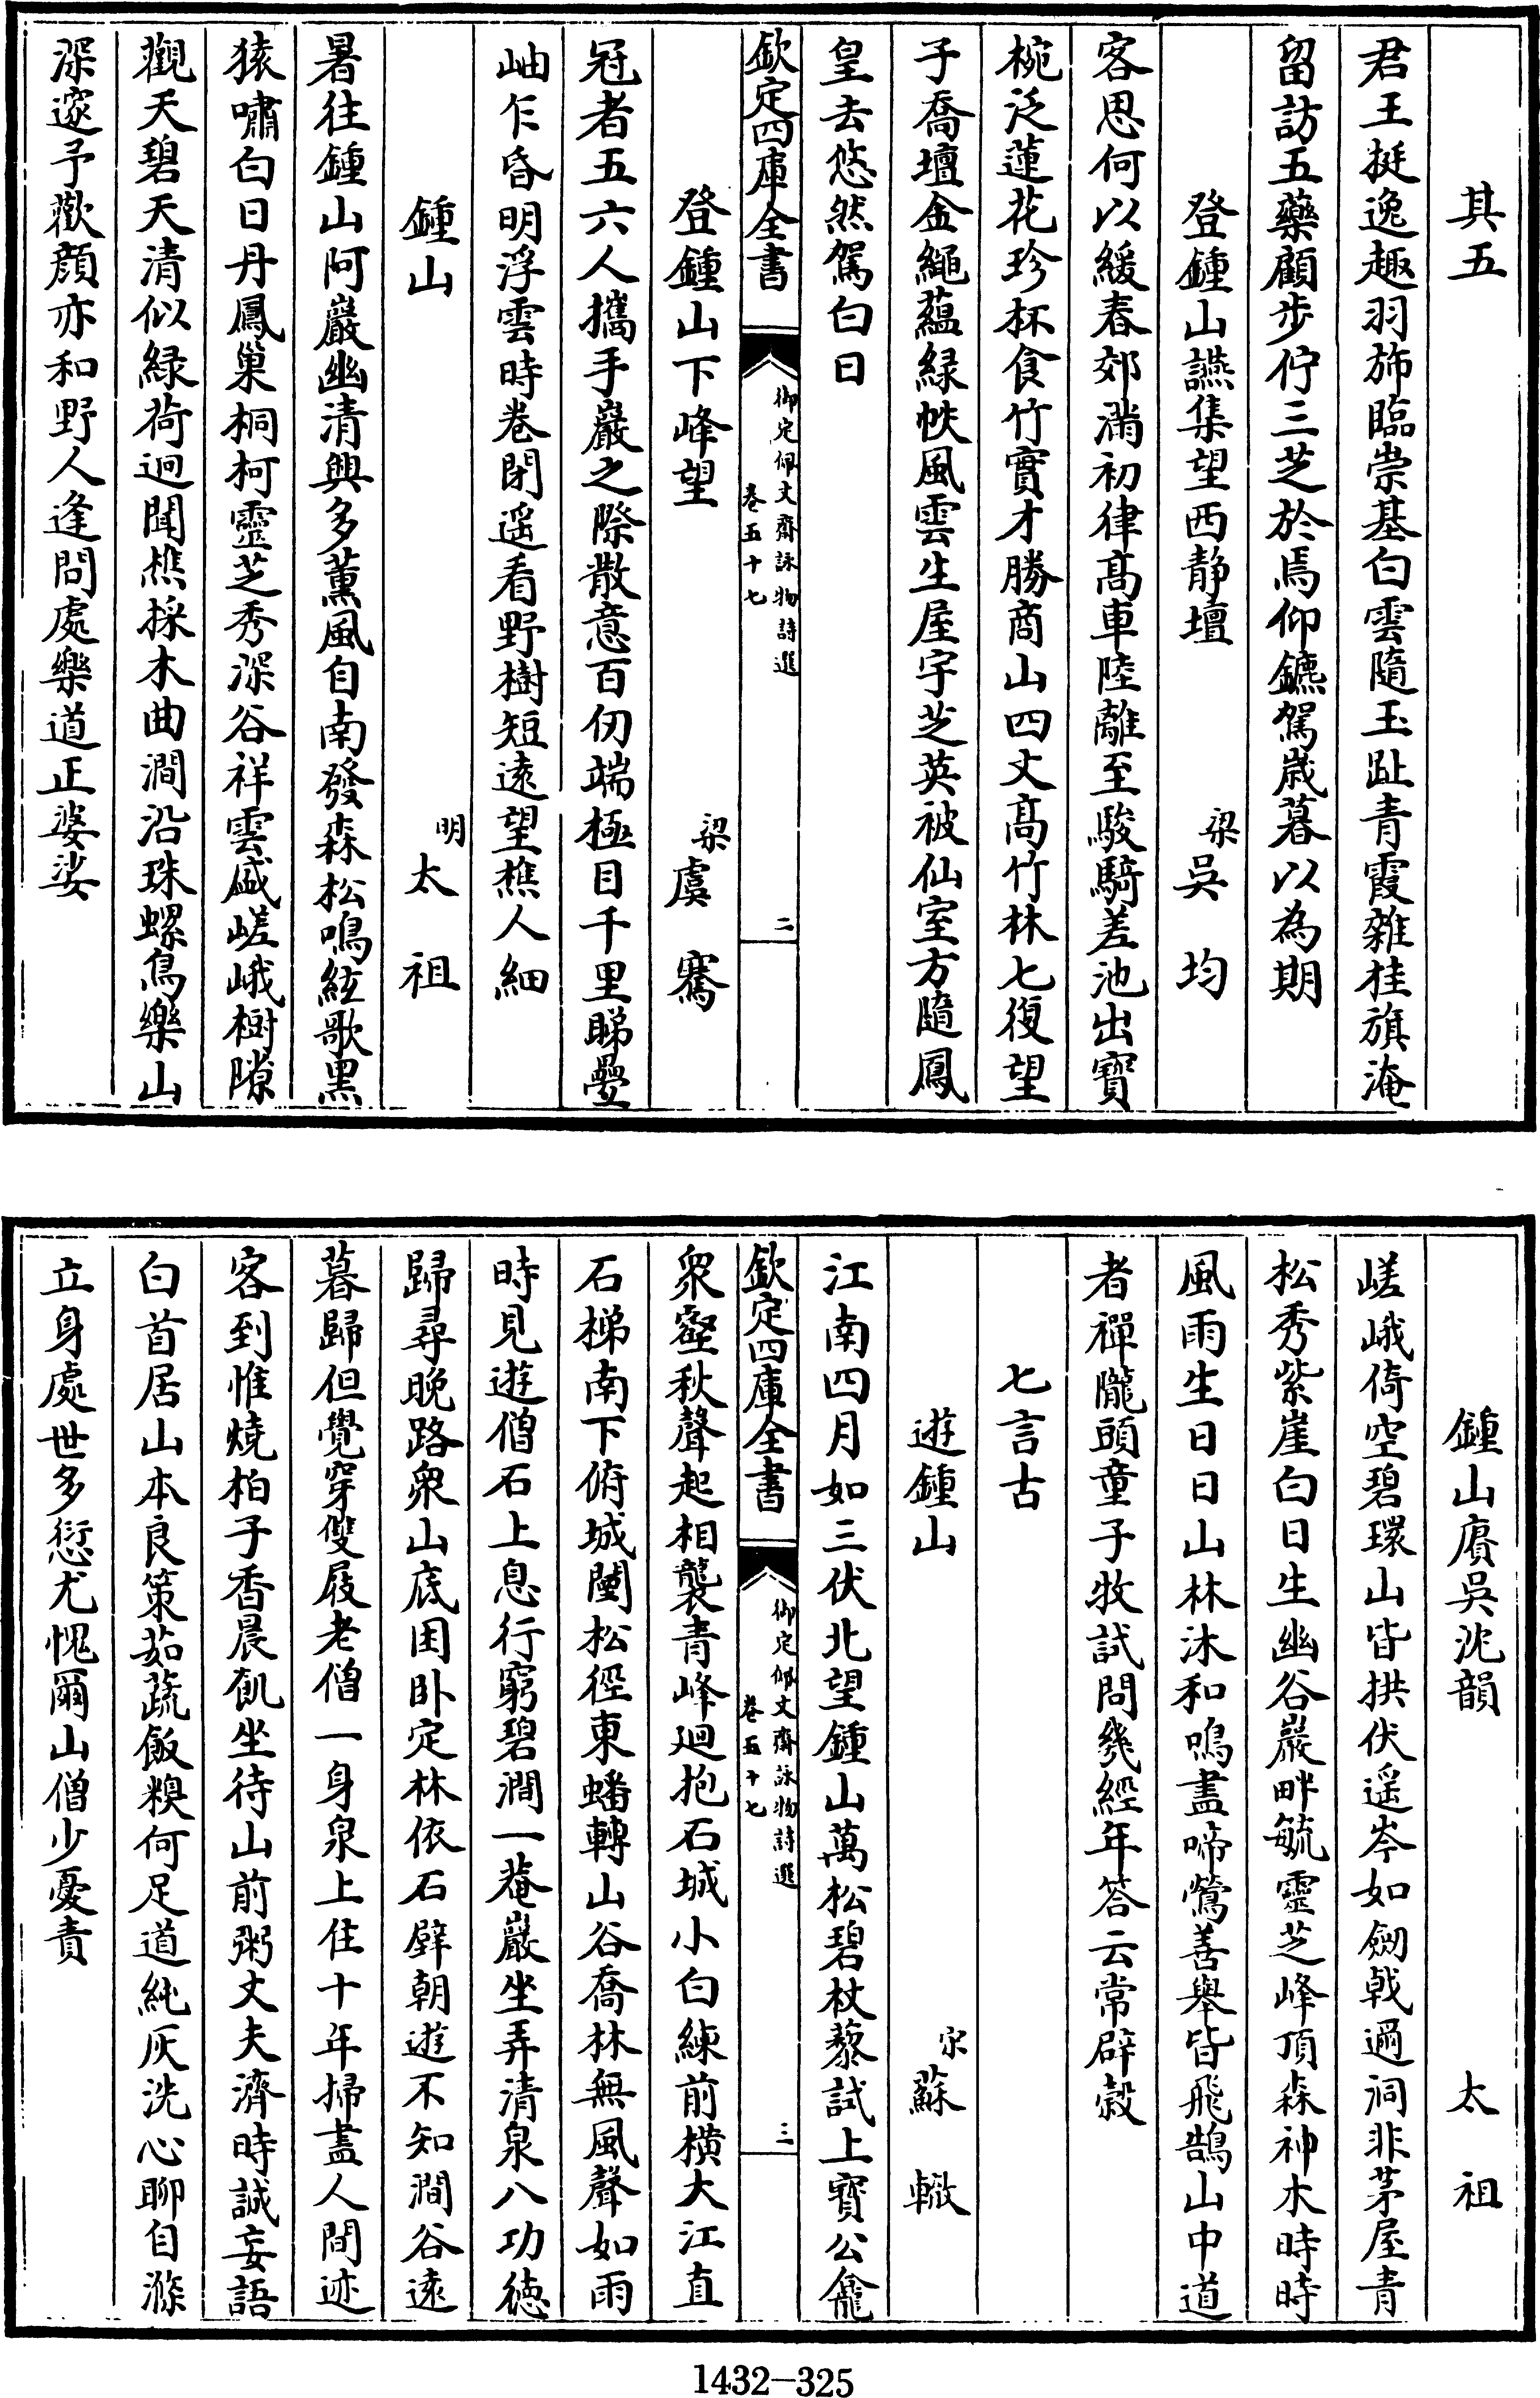 其五
君王挺逸趣羽斾臨崇基白雲隨玉趾青霞雜桂旗淹
留訪五藥顧步佇三芝於焉仰鑣駕歲暮以為期
登鍾山讌集望西静壇 梁吳均
客思何以緩春郊滿初律髙車陸離至駿騎差池出寶
椀泛蓮花珍杯食竹實才勝商山四文髙竹林七復望
子喬壇金繩藴緑帙風雲生屋宇芝英被仙室方隨鳳
皇去悠然駕白日
欽定四庫全書 御定佩文齋詠物詩選 卷五十七 二
登鍾山下峰望 梁虞騫
冠者五六人攜手巖之際散意百仞端極目千里睇疊
岫乍昏明浮雲時卷閉遥看野樹短遠望樵人細
鍾山 明太祖
暑往鍾山阿巖幽清興多薰風自南發森松鳴絃歌黑
猿嘯白日丹鳳巢桐柯靈芝秀深谷祥雲盛嵯峨樹隙
觀天碧天清似緑荷迥聞樵採木曲澗沿珠螺鳥樂山
深邃予歡顔亦和野人逢問處樂道正婆娑
鍾山賡吳沈韻 太祖
嵯峨倚空碧環山皆拱伏遥岑如劒戟邇洞非茅屋青
松秀紫崖白日生幽谷巖畔毓靈芝峰頂森神木時時
風雨生日日山林沐和鳴盡啼鶯善舉皆飛鵠山中道
者禪隴頭童子牧試問幾經年答云常辟穀
七言古
遊鍾山 宋蘇轍
江南四月如三伏北望鍾山萬松碧杖藜試上寶公龕
欽定四庫全書 御定佩文齋詠物詩選 卷五十七 三
衆壑秋聲起相襲青峰廻抱石城小白練前横大江直
石梯南下俯城闉松徑東蟠轉山谷喬林無風聲如雨
時見遊僧石上息行窮碧澗一菴巖坐弄清泉八功徳
歸尋晚路衆山底困卧定林依石壁朝遊不知澗谷遠
暮歸但覺穿雙屐老僧一身泉上住十年掃盡人間迹
客到惟燒柏子香晨飢坐待山前粥丈夫濟時誠妄語
白首居山本良策茹蔬飯糗何足道純灰洗心聊自滌
立身處世多愆尤愧爾山僧少憂責
1432-325